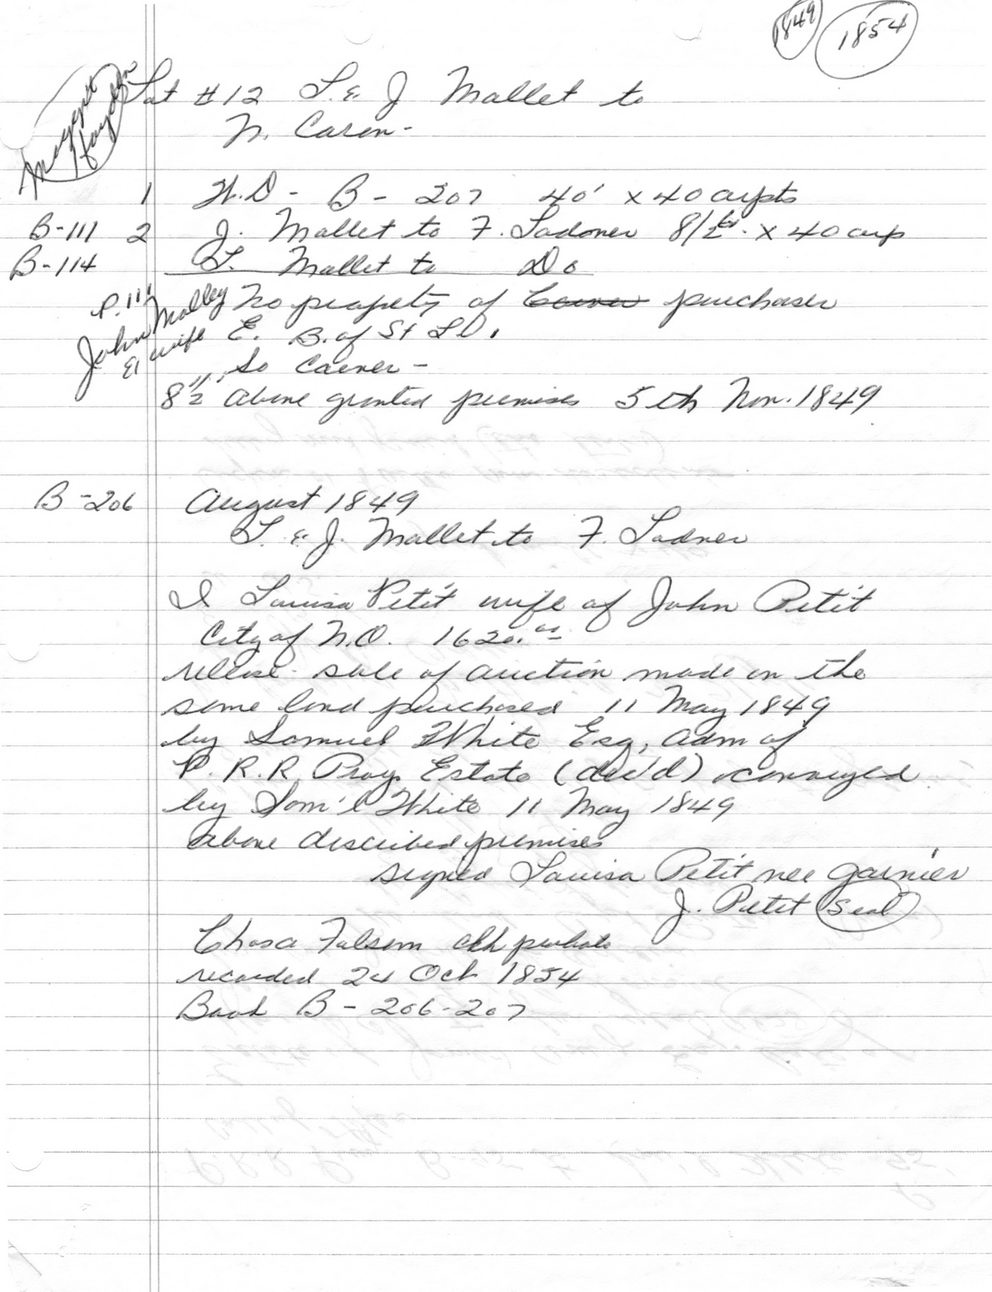 1849 1854
Margaret
Lot #12 L. & J Mallet to
N. Caron -
1 W.D - B - 207 40' x 40 arpts
B-111 2 J. Mallet to F. Ladner 8 1/2 x 40 arp
B-114 L. Mallet to Do
P. 111 No property of purchaser
John Malley
& wife E. B. of St L.
So Corner -
8 1/2 above granted premises 5th Nov. 1849
B-206 August 1849
L. & J. Mallet to F. Ladner
I Louisa Petit wife of John Petit
City of N.O. 1620.00
release sale of auction made on the
same land purchased 11 May 1849
by Samuel White Esq, adm of
P. R. R. Pray Estate (dec'd) conveyed
by Sam'l White 11 May 1849
above described premises
signed Louisa Petit nee Garnier
J. Petit (Seal)
Folsom clk probate
recorded 24 Oct 1854
Book B - 206-207